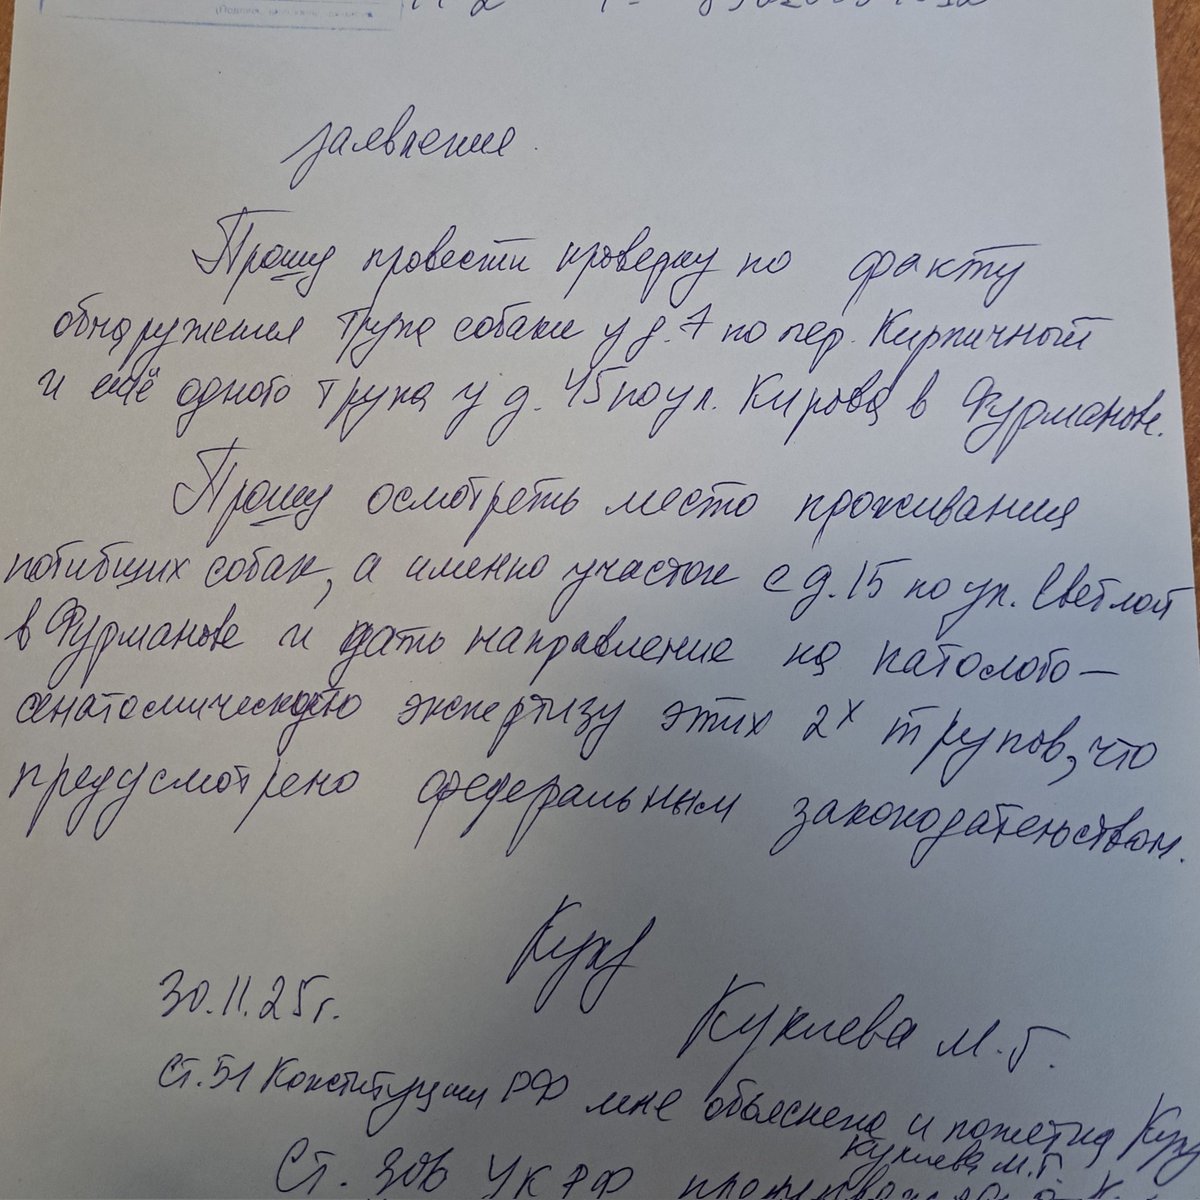 заявление.
Прошу провести проверку по факту
обнаружения трупа собаки у д.7 по пер. Кирпичный
и ещё одного трупа у д. 45 по ул. Кирова в Фурманове.
Прошу осмотреть место проживания
погибших собак, а именно участок с д.15 по ул. Светлой
в Фурманове и дать направление на патолого-
анатомическую экспертизу этих 2х трупов, что
предусмотрено федеральным законодательством.
30.11.25г.
Куклева М.Г.
Ст.51 Конституции РФ мне объяснена и понятна
Куклева М.Г.
Ст. 306 УК РФ